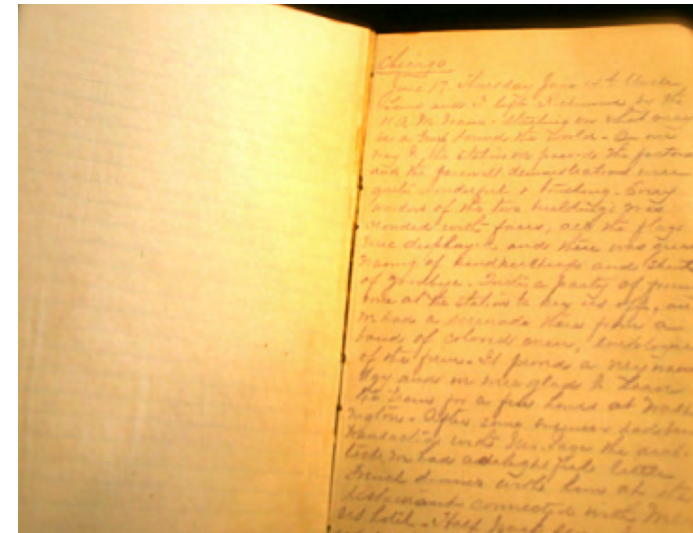 Chicago
June 17. Thursday June 14th Uncle
and I left Richmond by the
11 A.M. train. Starting on what was
a tour round the world. On our
way to the station we passed the factories
and the farewell demonstrations were
quite wonderful & touching. Every
window of the two buildings was
crowded with faces, all the flags
were displayed, and there was great
waving of handkerchiefs and shouts
of goodbye. Quite a party of friends
were at the station to say us off, and
we had a serenade there from a
band of colored men, employees
of the firm. It proved a very warm
day and we were glad to leave
the train for a few hours at Wash-
ington. After some business had been
transacted with Mr. Page the archi-
tect, we had a delightful little
French dinner with him at the
restaurant connected with
hotel. Half past